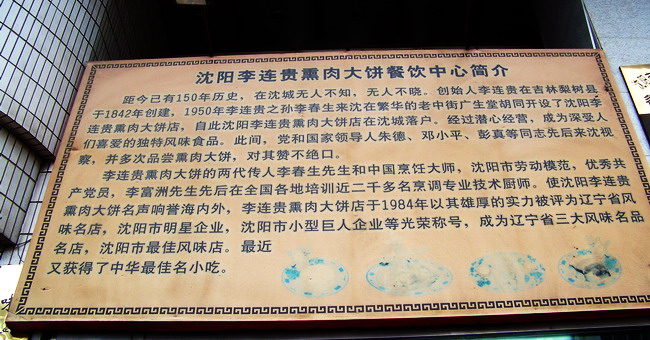 沈阳李连贵熏肉大饼餐饮中心简介
距今已有150年历史，在沈城无人不知，无人不晓。创始人李连贵在吉林梨树县
于1842年创建，1950年李连贵之孙李春生来沈在繁华的老中街广生堂胡同开设了沈阳李
连贵熏肉大饼店，自此沈阳李连贵熏肉大饼店在沈城落户。经过潜心经营，成为深受人
们喜爱的独特风味食品。此间，党和国家领导人朱德、邓小平、彭真等同志先后来沈视
察，并多次品尝熏肉大饼，对其赞不绝口。
李连贵熏肉大饼的两代传人李春生先生和中国烹饪大师，沈阳市劳动模范，优秀共
产党员，李富洲先生先后在全国各地培训近二千多名烹调专业技术厨师。使沈阳李连贵
熏肉大饼名声响誉海内外，李连贵熏肉大饼店于1984年以其雄厚的实力被评为辽宁省风
味名店，沈阳市明星企业，沈阳市小型巨人企业等光荣称号，成为辽宁省三大风味名品
名店，沈阳市最佳风味店。最近
又获得了中华最佳名小吃。